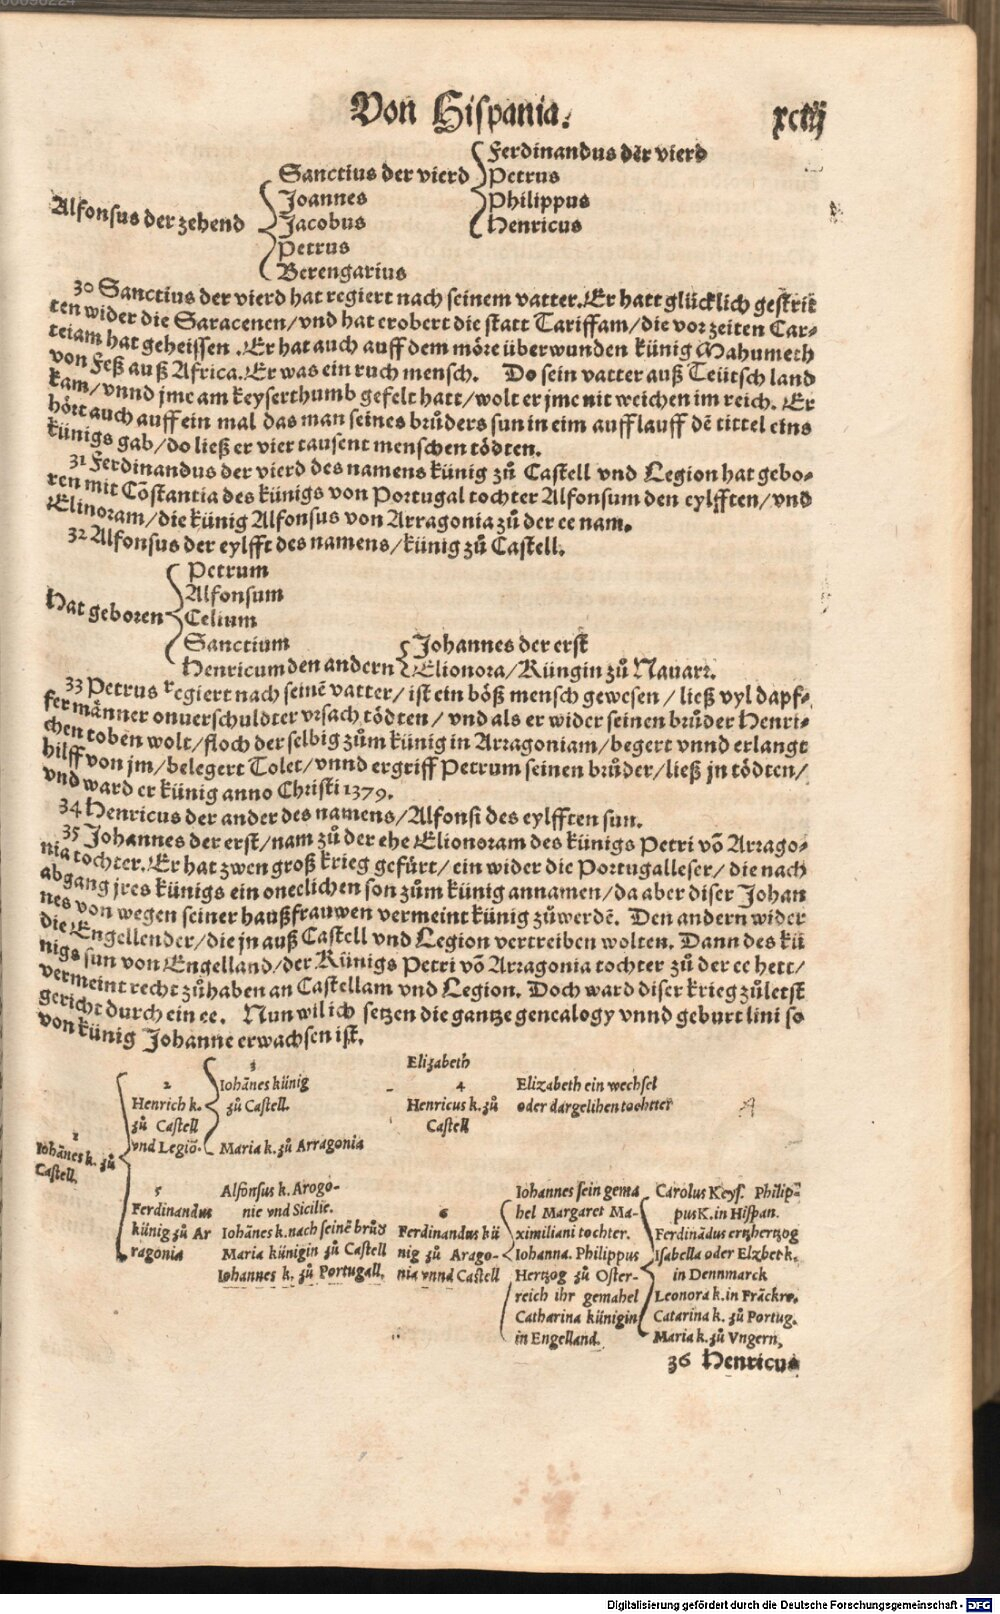 Von Hispania.
Ferdinandus der vierd
Sanctius der vierd
Petrus
Joannes
Philippus
Alfonsus der zehend
Jacobus
Henricus
Petrus
Berengarius
30 Sanctius der vierd hat regiert nach seinem vatter. Er hatt glücklich gestrit
ten wider die Saracenen/vnd hat erobert die statt Tariffam/die vor zeiten Car-
teiam hat geheissen. Er hat auch auff dem möre überwunden künig Mahumeth
von Feß auß Africa. Er was ein ruch mensch. Do sein vatter auß Teütsch land
kam/vnnd jme am keyserthumb gefelt hatt/wolt er jme nit weichen im reich. Er
hört auch auff ein mal das man seines brůders sun in eim aufflauff dē tittel eins
künigs gab/do ließ er vier tausent menschen tödten.
31 Ferdinandus der vierd des namens künig zů Castell vnd Legion hat gebo-
ren mit Cōstantia des künigs von Portugal tochter Alfonsum den eylfften/vnd
Elinoram/die künig Alfonsus von Arragonia zů der ee nam.
32 Alfonsus der eylfft des namens/künig zů Castell.
Petrum
Alfonsum
Hat geboren
Celium
Sanctium
Johannes der erst
Henricum den andern
Elionora/Küngin zů Nauarr.
33 Petrus regiert nach seinē vatter/ist ein böß mensch gewesen/ließ vyl dapf-
fer männer onuerschuldter vrsach tödten/vnd als er wider seinen brůder Henri-
chen toben wolt/floch der selbig zům künig in Arragoniam/begert vnnd erlangt
hilff von jm/belegert Tolet/vnnd ergriff Petrum seinen brůder/ließ jn tödten/
vnd ward er künig anno Christi 1379.
34 Henricus der ander des namens/Alfonsi des eylfften sun.
35 Johannes der erst/nam zů der ehe Elionoram des künigs Petri vō Arrago-
nia tochter. Er hat zwen groß krieg gefürt/ein wider die Portugalleser/die nach
abgang jres künigs ein oneelichen son zům künig annamen/da aber diser Johan
nes von wegen seiner haußfrauwen vermeint künig zůwerdē. Den andern wider
die Engellender/die jn auß Castell vnd Legion vertreiben wolten. Dann des kü
nigs sun von Engelland/der Künigs Petri vō Arragonia tochter zů der ee hett/
vermeint recht zůhaben an Castellam vnd Legion. Doch ward diser krieg zůletst
gericht durch ein ee. Nun wil ich setzen die gantze genealogy vnnd geburt lini so
von künig Johanne erwachsen ist.
1
Iohānes k. zů
Castell.
2
Henrich k.
zů Castell
vnd Legiō.
3
Iohānes künig
zů Castell.
Maria k. zů Arragonia
Elizabeth
4
Henricus k. zů
Castell
Elizabeth ein wechsel
oder dargelihen tochtter
5
Ferdinandus
künig zů Ar
ragonia
Alfonsus k. Arogo-
nie vnd Sicilie.
Iohānes k. nach seinē brůd
Maria künigin zů Castell
Iohannes k. zů Portugall.
6
Ferdinandus kü
nig zů Arago-
nia vnnd Castell
Iohannes sein gema
hel Margaret Ma-
ximiliani tochter.
Iohanna. Philippus
Hertzog zů Oster-
reich ihr gemahel
Catharina künigin
in Engelland.
Carolus Keys. Philip-
pus K. in Hispan.
Ferdinādus ertzhertzog
Isabella oder Elzbet k.
in Dennmarck
Leonora k. in Frāckre.
Catarina k. zů Portug.
Maria k. zů Vngern,
36 Henricus
Digitalisierung gefördert durch die Deutsche Forschungsgemeinschaft - DFG